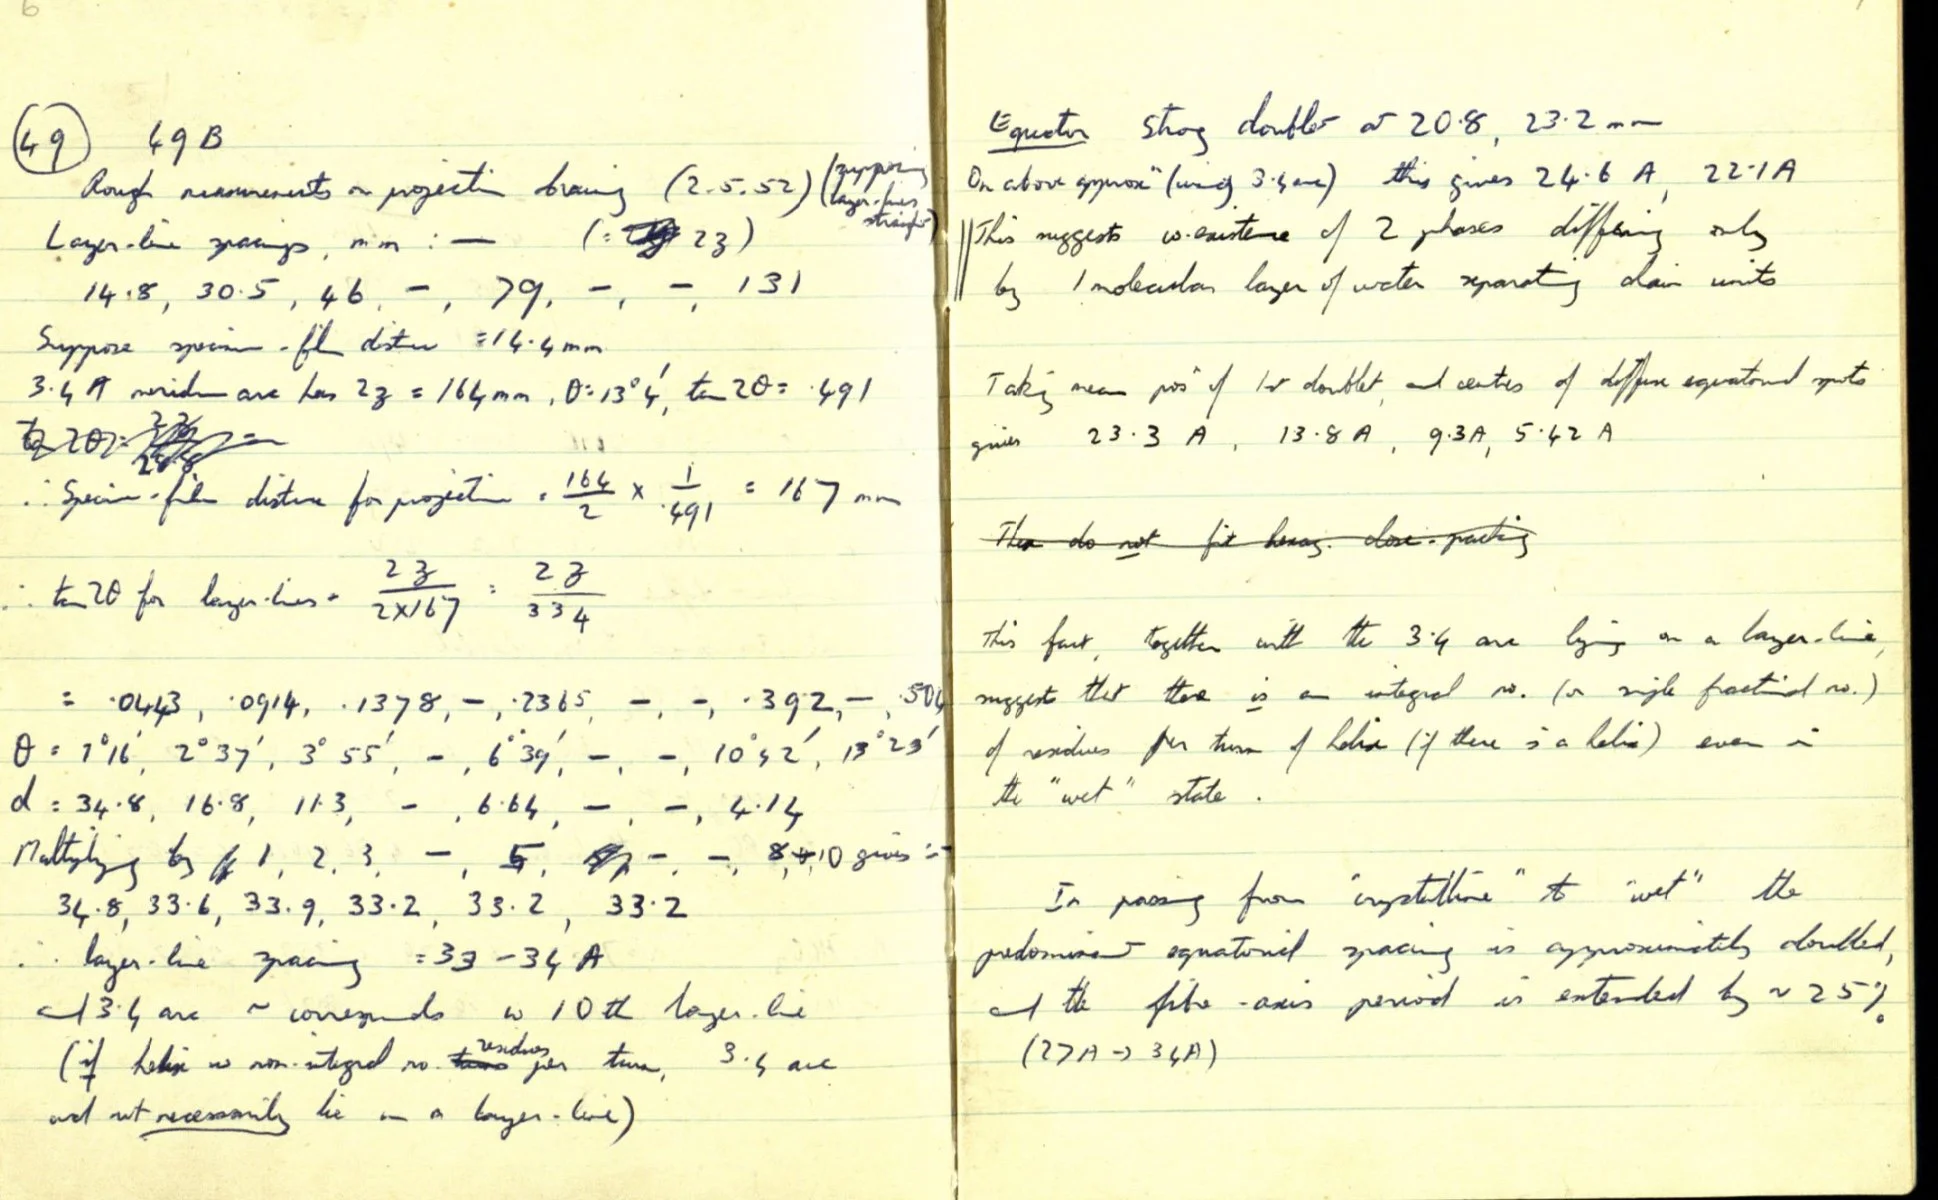 6
49 49B
Rough measurements on projection tracing (2.5.52) (supposing layer-lines straight)
Layer-line spacings, mm : — (= 2z)
14.8, 30.5, 46, –, 79, –, –, 131
Suppose specimen-film distance = 14.4 mm
3.4 A meridian arc has 2z = 164 mm, θ = 13° 4', tan 2θ = .491
tan 2θ =
∴ Specimen-film distance for projection = 164/2 × 1/.491 = 167 mm
∴ tan 2θ for layer-lines = 2z/2×167 = 2z/334
= .0443, .0914, .1378, –, .2365, –, –, .392, –, .504
θ = 1°16', 2°37', 3°55', –, 6°39', –, –, 10°42', 13°23'
d = 34.8, 16.8, 11.3, –, 6.64, –, –, 4.14
Multiplying by 1, 2, 3, –, 5, –, –, 8, 10 gives :–
34.8, 33.6, 33.9, 33.2, 33.2, 33.2
∴ layer-line spacing = 33 – 34 A
and 3.4 arc ~ corresponds to 10th layer-line
(if helix w non-integral no. turns residues per turn, 3.4 arc
wd not necessarily lie on a layer-line)
Equator Strong doublet at 20.8, 23.2 mm
On above approxn (using 3.4 arc) this gives 24.6 A, 22.1 A
This suggests co-existence of 2 phases differing only
by 1 molecular layer of water separating chain units
Taking mean posn of 1st doublet, and centres of diffuse equatorial spots
gives 23.3 A, 13.8 A, 9.3 A, 5.42 A
These do not fit hexag. close-packing
This fact, together with the 3.4 arc lying on a layer-line,
suggest that there is an integral no. (or single fractional no.)
of residues per turn of helix (if there is a helix) even in
the "wet" state.
In passing from "crystalline" to "wet" the
predominant equatorial spacing is approximately doubled,
and the fibre-axis period is extended by ~ 25%
(27A → 34A)